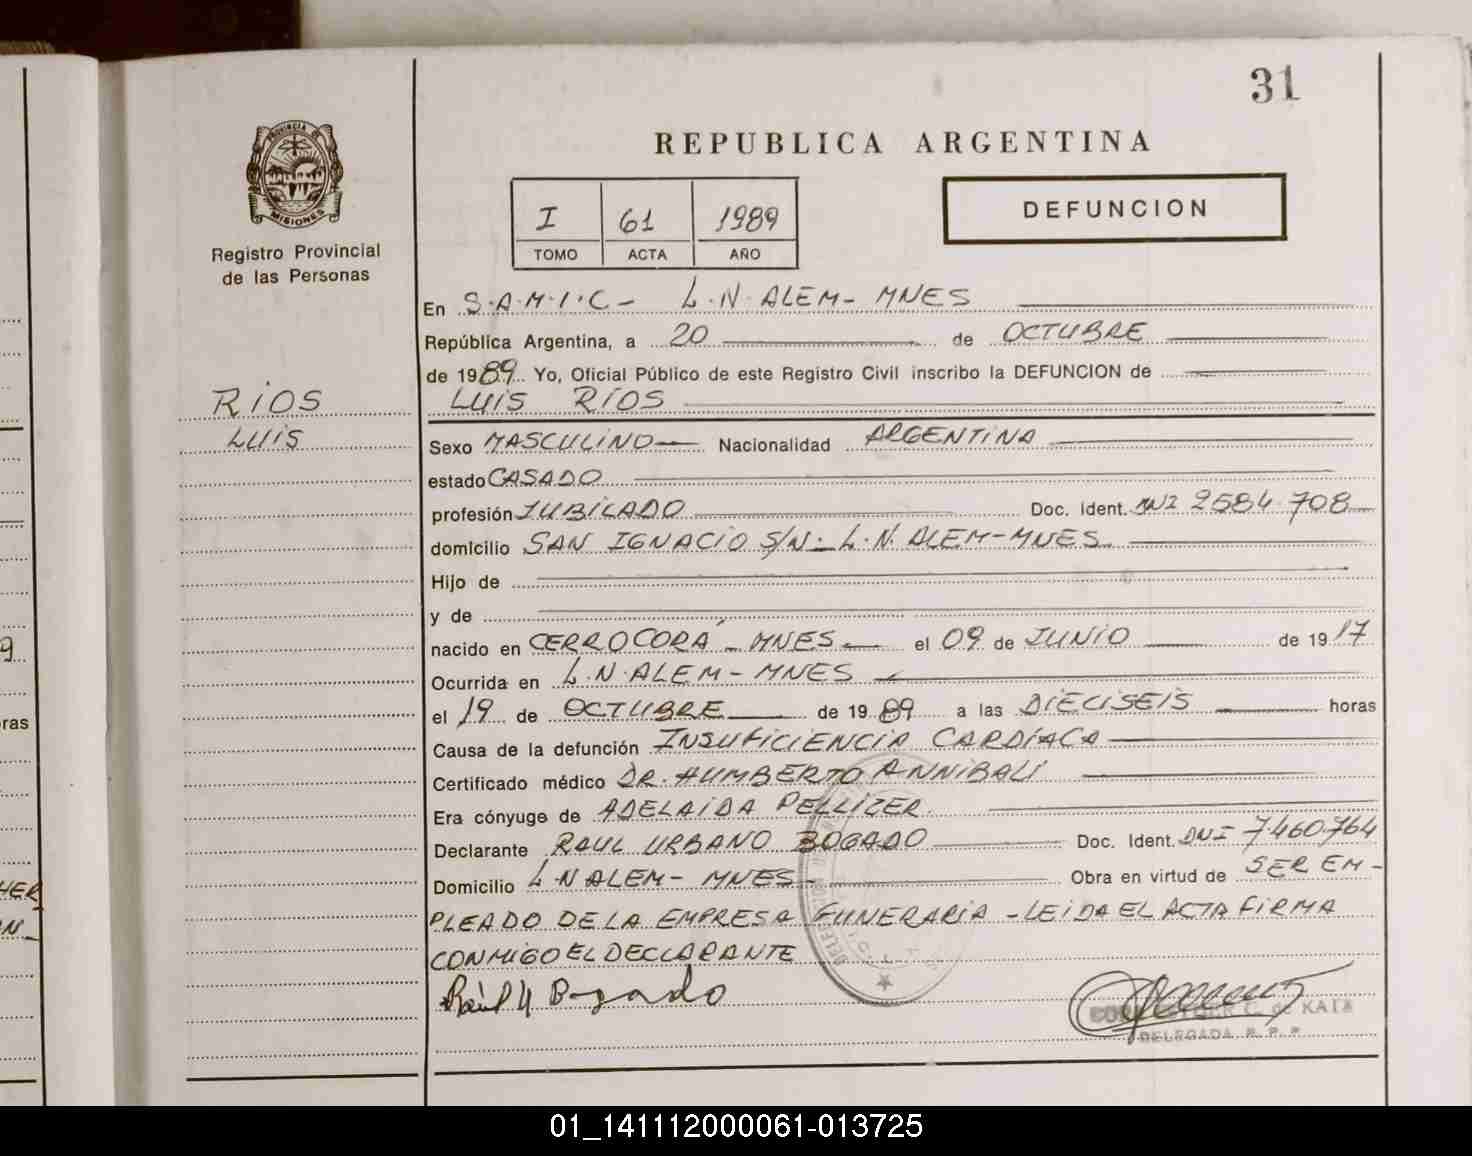 31
PROVINCIA DE
MISIONES
Registro Provincial
de las Personas
REPUBLICA ARGENTINA
I 61 1989
TOMO ACTA AÑO
DEFUNCION
En S.A.M.I.C- L.N.ALEM- MNES
República Argentina, a 20 de OCTUBRE
de 1989 Yo, Oficial Público de este Registro Civil inscribo la DEFUNCION de
LUIS RÍOS
RÍOS
LUIS
Sexo MASCULINO Nacionalidad ARGENTINA
estado CASADO
profesión JUBILADO Doc. Ident. DNI 2584.708
domicilio SAN IGNACIO S/N- L.N. ALEM-MNES
Hijo de
y de
nacido en CERRO CORÁ - MNES el 09 de JUNIO de 1917
Ocurrida en L.N.ALEM- MNES
el 19 de OCTUBRE de 1989 a las DIECISEIS horas
Causa de la defunción INSUFICIENCIA CARDÍACA
Certificado médico DR. HUMBERTO ANNIBALI
Era cónyuge de ADELAIDA PELLIZER
Declarante RAUL URBANO BOGADO Doc. Ident. DNI 7.460.764
Domicilio L.N ALEM- MNES- Obra en virtud de SER EM-
PLEADO DE LA EMPRESA FUNERARIA - LEIDA EL ACTA FIRMA
CONMIGO EL DECLARANTE
Raúl U Bogado
C. de KATZ
DELEGADA R. P. P.
9
ras
HER
N
01_141112000061-013725